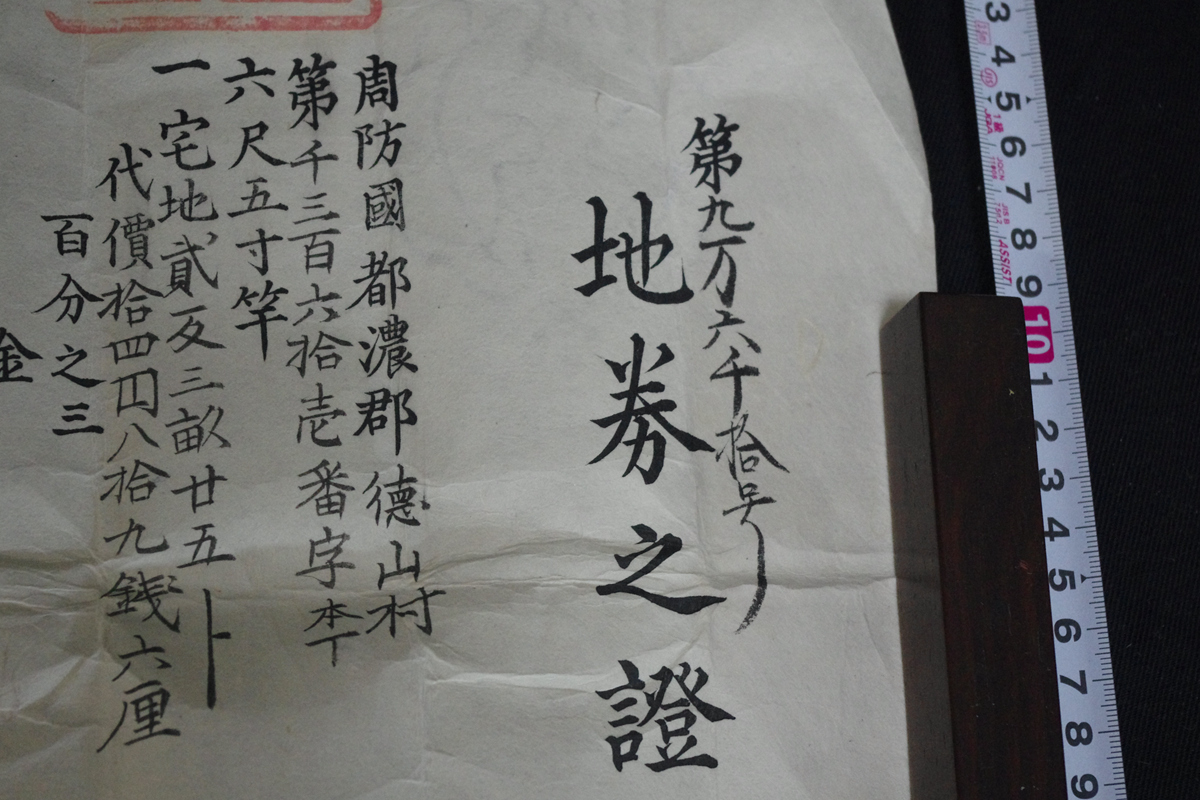 第九万六千拾号
地券之證
周防國都濃郡德山村
第千三百六拾壱番字本丁
六尺五寸竿
一宅地貳反三畝廿五ト
代價拾四円八拾九銭六厘
百分之三
金
3 4 5 6 7 8 9 10 1 2 3 4 5 6 7 8 9
ASSIST